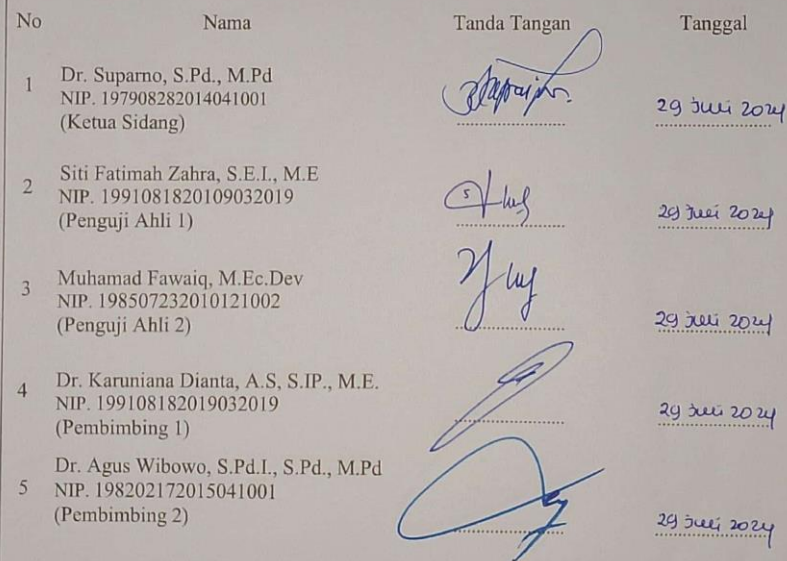 No Nama Tanda Tangan Tanggal
1 Dr. Suparno, S.Pd., M.Pd
NIP. 197908282014041001
(Ketua Sidang)
29 Juli 2024
2 Siti Fatimah Zahra, S.E.I., M.E
NIP. 1991081820109032019
(Penguji Ahli 1)
29 Juli 2024
3 Muhamad Fawaiq, M.Ec.Dev
NIP. 198507232010121002
(Penguji Ahli 2)
29 Juli 2024
4 Dr. Karuniana Dianta, A.S, S.IP., M.E.
NIP. 199108182019032019
(Pembimbing 1)
29 Juli 2024
5 Dr. Agus Wibowo, S.Pd.I., S.Pd., M.Pd
NIP. 198202172015041001
(Pembimbing 2)
29 Juli 2024